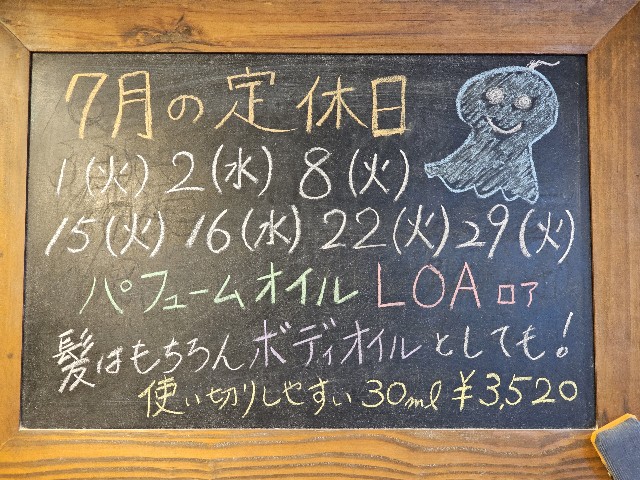 7月の定休日
1(火) 2(水) 8(火)
15(火) 16(水) 22(火) 29(火)
パフュームオイル LOA ロア
髪はもちろんボディオイルとしても!
使い切りしやすい 30ml ¥3,520